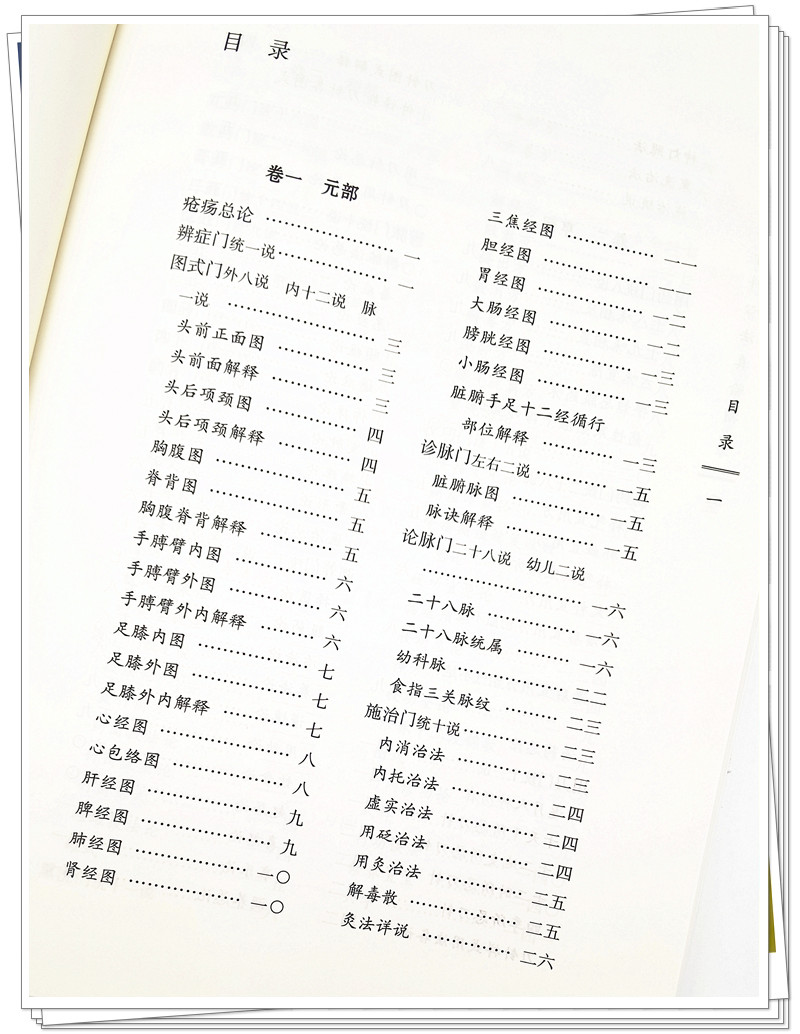 目 录
卷一 元部
疮疡总论 …………………… 一
辨症门统一说…………………… 一
图式门外八说 内十二说 脉
一说 …………………… 三
头前正面图 …………………… 三
头前面解释 …………………… 三
头后项颈图 …………………… 四
头后项颈解释 …………………… 四
胸腹图 …………………… 五
脊背图 …………………… 五
胸腹脊背解释 …………………… 五
手膊臂内图 …………………… 六
手膊臂外图 …………………… 六
手膊臂外内解释 …………………… 六
足膝内图 …………………… 七
足膝外图 …………………… 七
足膝外内解释 …………………… 七
心经图 …………………… 八
心包络图 …………………… 八
肝经图 …………………… 九
脾经图 …………………… 九
肺经图 …………………… 一〇
肾经图 …………………… 一〇
三焦经图 …………………… 一一
胆经图 …………………… 一一
胃经图 …………………… 一二
大肠经图 …………………… 一二
膀胱经图 …………………… 一三
小肠经图 …………………… 一三
脏腑手足十二经循行
部位解释 …………………… 一三
诊脉门左右二说 …………………… 一五
脏腑脉图 …………………… 一五
脉诀解释 …………………… 一五
论脉门二十八说 幼儿二说
…………………… 一六
二十八脉 …………………… 一六
二十八脉统属 …………………… 一六
幼科脉 …………………… 二二
食指三关脉纹 …………………… 二三
施治门统十说…………………… 二三
内消治法 …………………… 二三
内托治法 …………………… 二四
虚实治法 …………………… 二四
用砭治法 …………………… 二四
用灸治法 …………………… 二五
解毒散 …………………… 二五
灸法详说 …………………… 二六
目录
一